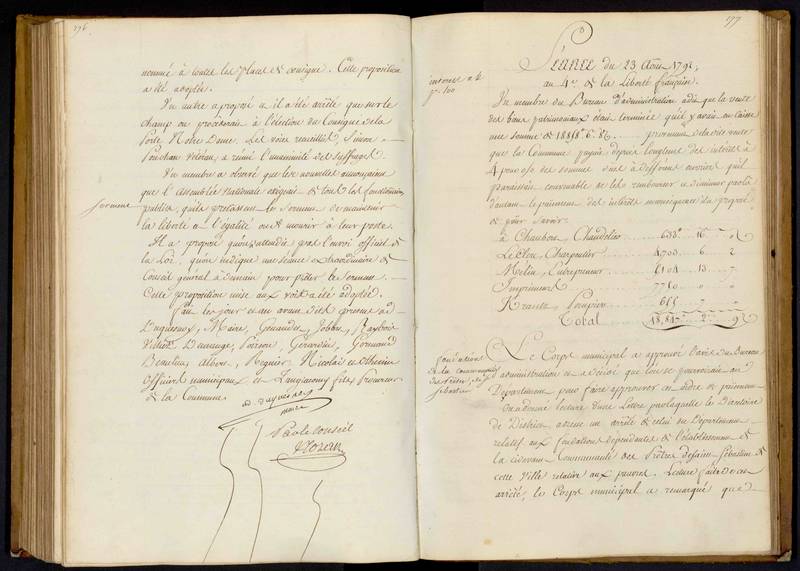 176.
nommé à toutes les places de consigne. Cette proposition
a été adoptée.
Un autre a proposé et il a été arrêté que sur le
champ on procéderait à l'élection du Consigne de la
Porte Notre Dame. Les voix recueillies, Simon
Ponchan Vétéran, a réuni l'unanimité des suffrages.
Un membre a observé que les nouvelles annonçaient
que l'assemblée nationale exigeait de tous les fonctionnaires
serment
publics, qu'ils prêtassent le serment de maintenir
la liberté et l'égalité ou de mourir à leur poste.
Il a proposé qu'en attendant l'envoi officiel de
la Loi, qu'on indiqua une séance extraordinaire du
Conseil général à demain pour prêter le serment.
Cette proposition mise aux voix a été adoptée.
Fait les jour et an avant dits présents
Duquesnoy, Maire, Genaudet, Jobba, Raybois
Villiez, Poirson, Gerardin, Germand
Beaulieu, Albert, Regnier, Nicolas et Othenin
Officiers municipaux et Zangiacomy fils, Procureur
de la Commune.
a. duquesnoy
maire
Par le Conseil
177
Séance du 23 Août 1792,
au 4e de la Liberté française.
interets a 4
pr. 100
Un membre du Bureau d'administration a dit que la vente
des biens patrimoniaux étant terminée qu'il y avait en caisse
une somme de provenue de la dite vente
que la Commune payait depuis longtemps des intérêts à
4 pour 0/0 des sommes dues à des ouvriers qu'il
paraissait convenable de les rembourser et diminuer par là
d'autant le paiement des intérêts
savoir
à Chambon, Chaudelier 16
Le Clerc, Charpentier 4703 6 2
Melin, Entrepreneur 6104 13 7
Imprimeurs
Krantz, Pompier 7
Total 2
Fondations
de la communauté
des prêtres de St
Sébastien
Le Corps municipal a approuvé l'avis du Bureau
administration et a décidé que l'on se pourvoirait au
Département pour faire approuver cet ordre de paiement.
On a donné lecture d'une Lettre par laquelle le Directoire
de District adresse un arrêté de celui du Département
relatif aux fondations dépendantes de l'établissement de
la cidevant Communauté des Prêtres de saint Sébastien de
cette Ville relative aux pauvres. Lecture faite de cet
arrêté, le Corps municipal a remarqué que